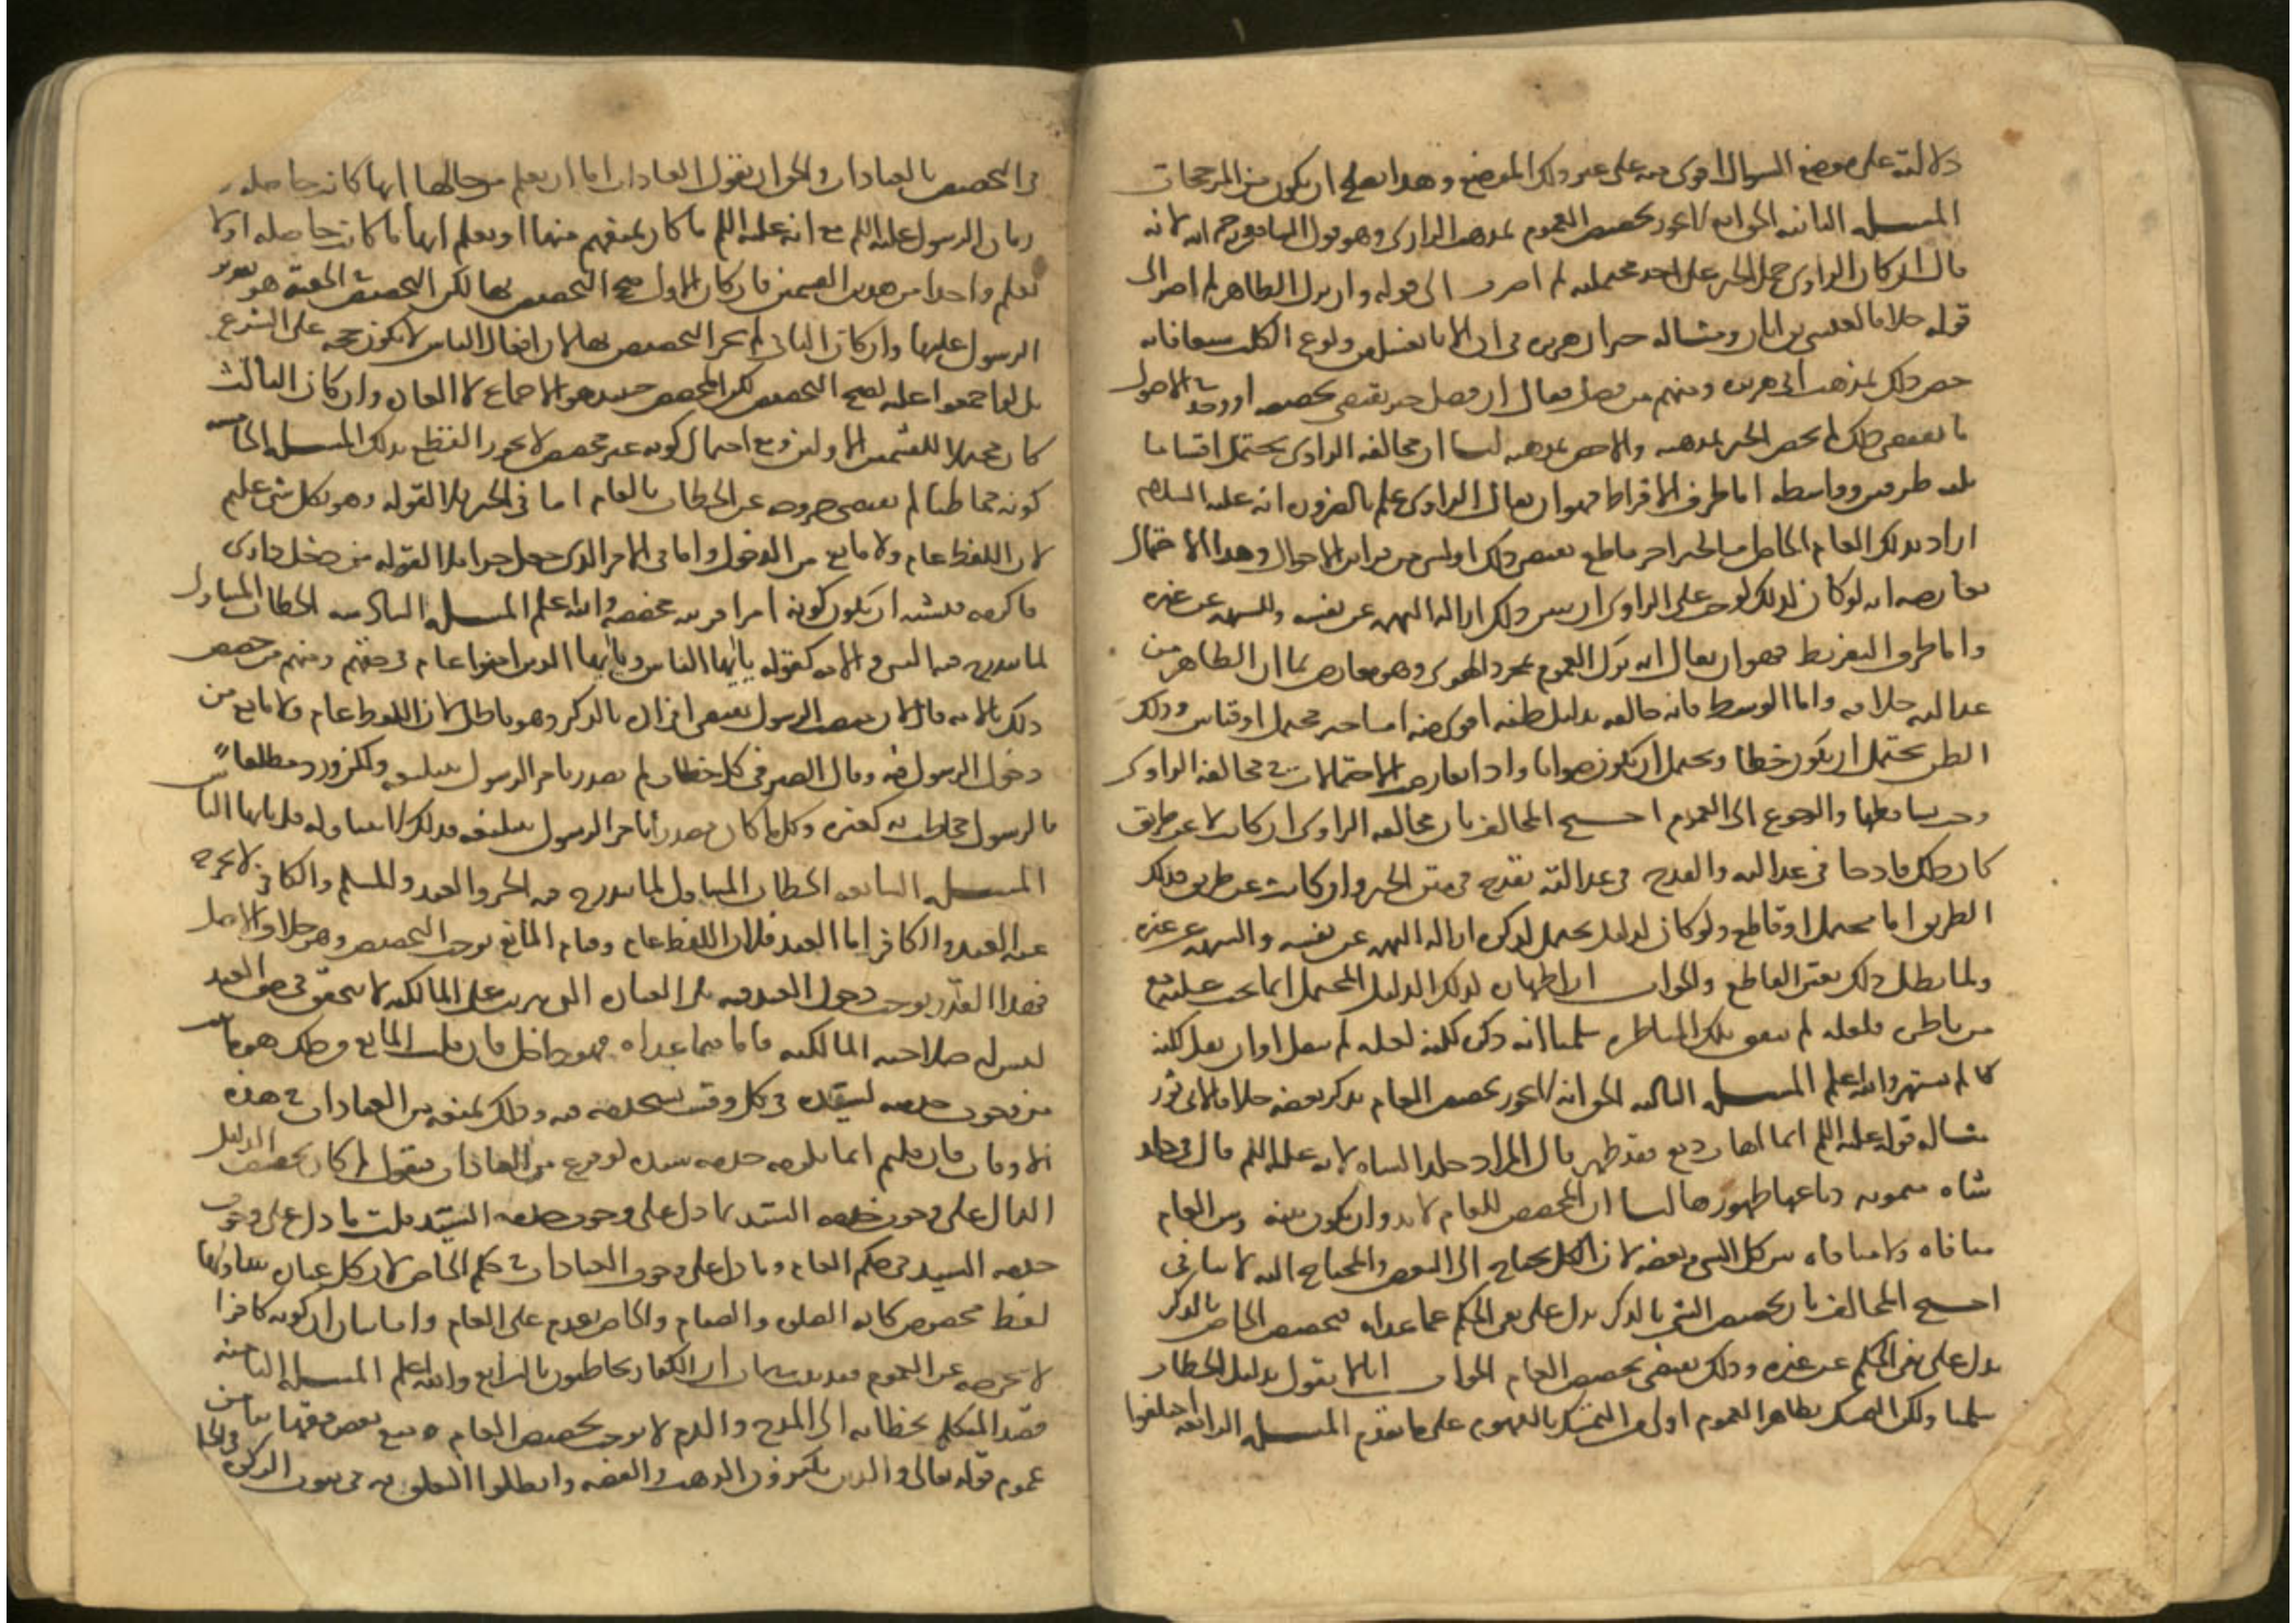 دلالته على موضع السوال اقوى منه على غير ذلك الموضع وهذا يصلح ان يكون من المرجحات
المسله الثانيه الحق انه لا يجوز تخصيص العموم بمذهب الراوى وهو قول الشافعى رحمه الله لانه
قال ان كان الراوى حمل الخبر على احد محمليه لم اصر الى قوله وان ترك الظاهر لم اصر الى
قوله خلافا لعيسى بن ابان ومثاله خبر ابى هريره فى ان الانا يغسل من ولوغ الكلب سبعا فانه
خص ذلك بمذهب ابى هريره ومنهم من فصل فقال ان وجد خبر يقتضى تخصيصه او وجد فى الاصول
ما يقتضى ذلك لم يخص الخبر بمذهبه والا خص بمذهبه لنا ان مخالفه الراوى يحتمل اقساما
ثلثه طرفين وواسطه اما طرف الافراط فهو ان يقال الراوى علم بالضروره انه عليه السلام
اراد بذلك العام الخاص اما لخبر اخر قاطع يقتضى ذلك او لشى من قراين الاحوال وهذا الاحتمال
يعارضه انه لو كان كذلك لوجب على الراوى ان يبين ذلك ازاله للتهمه عن نفسه وللشبهه عن غيره
واما طرف التفريط فهو ان يقال انه ترك العموم بمجرد الهوى وهو معارض بما ان الظاهر من
عدالته خلافه واما الوسط فانه خالفه بدليل ظنه اقوى منه اما خبر محتمل او قياس وذلك
الظن يحتمل ان يكون خطا ويحتمل ان يكون صوابا واذا تعارضت الاحتمالات فى مخالفه الراوى
وجب تساقطها والرجوع الى العموم احتج المخالف بان مخالفه الراوى ان كانت لا عن طريق
كان ذلك قادحا فى عدالته والقدح فى عدالته يقدح فى متن الخبر وان كانت عن طريق فذلك
الطريق اما محتمل او قاطع ولو كان الدليل محتمل لذكره ازاله للتهمه عن نفسه والشبهه عن غيره
ولما بطل ذلك تعين القاطع والجواب ان اظهار ذلك الدليل المحتمل انما يجب عليه مع
من ناظره فلعله لم يتفق تلك المناظره سلمنا انه ذكره لكنه لعله لم ينقل او ان نقل لكنه
كان لم يشتهر والله اعلم المسله الثالثه الحق انه لا يجوز تخصيص العام بذكر بعضه خلافا لابى ثور
مثاله قوله عليه السلم ايما اهاب دبغ فقد طهر قال المراد جلد الشاه لانه عليه السلم قال فى جلد
شاه ميمونه دباغها طهورها لنا ان المخصص للعام لا بد وان يكون بينه وبين العام
منافاه ولا منافاه بين كل الشى وبعضه لان الكل محتاج الى البعض والمحتاج اليه لا ينافى
احتج المخالف بان تخصيص الشى بالذكر يدل على نفى الحكم عما عداه فتخصيص الخاص بالذكر
يدل على نفى الحكم عن غيره وذلك يقتضى تخصيص العام الجواب انا لا نقول بدليل الخطاب
سلمنا ولكن التمسك بظاهر العموم اولى من التمسك بالمفهوم على ما تقدم المسله الرابعه اختلفوا
فى التخصيص بالعادات والحق ان نقول العادات اما ان يعلم من حالها انها كانت حاصله فى
زمان الرسول عليه السلم مع انه عليه السلم ما كان يمنعهم منها او يعلم انها ما كانت حاصله او لا
يعلم واحدا من هذين القسمين فان كان الاول صح التخصيص بها لكن المخصص فى الحقيقه هو تقرير
الرسول عليها وان كان الثانى لم يجز التخصيص بها لان افعال الناس لا يكون حجه على الشرع
بل لو اجمعوا عليه لصح التخصيص لكن المخصص حينيذ هو الاجماع لا العاده وان كان الثالث
كان محتملا للقسمين الاولين ومع احتمال كونه غير مخصص لا يجوز القطع بذلك المسله الخامسه
كونه مخاطبا لم يقتضى خروجه عن الخطاب بالعام اما فى الخبر فلقوله وهو بكل شى عليم
لان اللفظ عام ولا مانع من الدخول واما فى الامر الذى جعل جزا كقوله من دخل دارى
فاكرمه فيشبه ان يكون كونه امرا قرينه مخصصه والله اعلم المسله السادسه الخطاب المتناول
لما يندرج فيه النبى والامه كقوله يا ايها الناس ويا ايها الذين امنوا عام فى حقهم ومنهم من خصص
ذلك بالامه قال لان منصب الرسول يقتضى افراده بالذكر وهو باطل لان اللفظ عام ولا مانع من
دخول الرسول فيه وقال الصيرفى كل خطاب لم يصدر بامر الرسول بتبليغه ولكن ورد مطلقا
فالرسول مخاطب به كغيره وكل ما كان مصدرا بامر الرسول بتبليغه فذلك لا يتناوله قل يا ايها الناس
المسله السابعه الخطاب المتناول لما يندرج فيه الحر والعبد والمسلم والكافر لا يخرج
عنه العبد والكافر اما العبد فلان اللفظ عام وقيام المانع يوجب التخصيص وهو خلاف الاصل
فهذا القدر يوجب دخول العبد فيه بلى العباده التى يترتب على المالكيه لا يتحقق فى حق العبد
ليس له صلاحيه المالكيه فاما فيما عداه فهو داخل فان قلت المانع من ذلك هو ما ثبت
من وجوب خدمته لسيده فى كل وقت يستخدمه فيه وذلك يمنعه من العبادات فى هذه
الاوقات فان قلتم انما يلزمه خدمه سيده لو فرغ من العبادات فنقول لم كان تخصيص الدليل
الدال على وجوب خدمه السيد بما دل على وجوب خدمه السيد قلت ما دل على وجوب
خدمه السيد فى حكم العام وما دل على وجوب العبادات فى حكم الخاص لان كل عباده يتناولها
لفظ مخصوص كايه الصلوه والصيام والخاص مقدم على العام واما بيان ان كونه كافرا
لا يخرجه عن العموم فقد ثبت بيان ان الكفار يخاطبون بالشرايع والله اعلم المسله الثامنه
قصد المتكلم بخطابه الى المدح والذم لا يوجب تخصيص العام ومنع بعض فقهاينا من
عموم قوله تعالى والذين يكنزون الذهب والفضه وابطلوا التعلق به فى ثبوت الزكوه فى الحلى